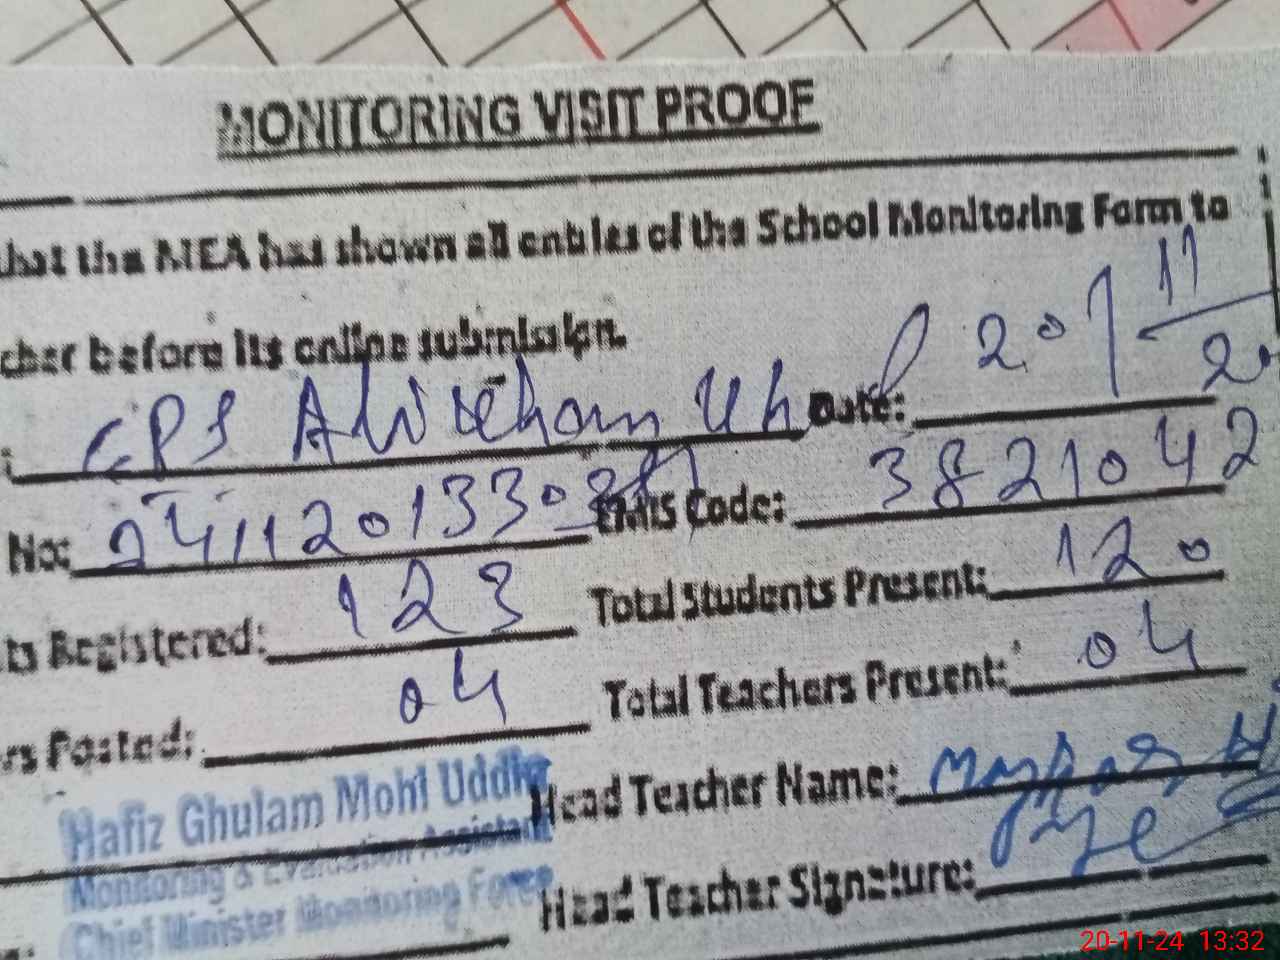 MONITORING VISIT PROOF
that the MEA has shown all entries of the School Monitoring Form to
cher before its online submission.
GPS Date: 20/11
No: EMIS Code: 3821042
ts Registered: 123 Total Students Present: 120
rs Posted: 04 Total Teachers Present: 04
Hafiz Ghulam Mohi Uddin Head Teacher Name:
Monitoring & Evaluation Assistant
Chief Minister Monitoring Force Head Teacher Signature:
20-11-24 13:32